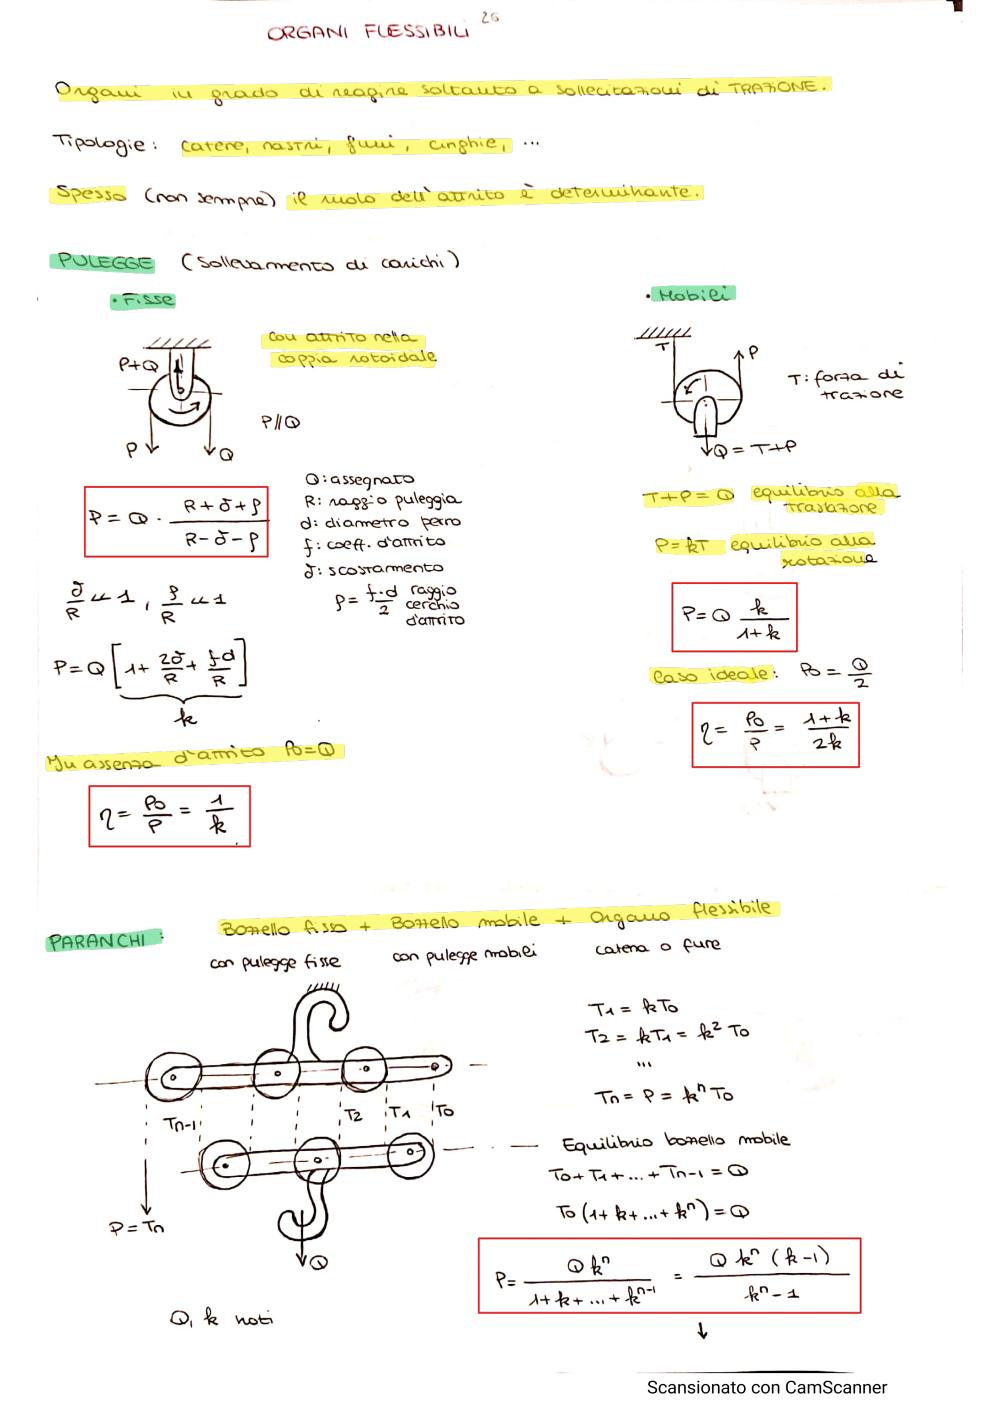 26
ORGANI FLESSIBILI
Organi in grado di reagire soltanto a sollecitazioni di TRAZIONE.
Tipologie: catene, nastri, funi, cinghie, ...
Spesso (non sempre) il ruolo dell'attrito è determinante.
PULEGGE (Sollevamento di carichi)
• Fisse
con attrito nella
coppia rotoidale
P+Q
P//Q
P
Q
Q: assegnato
R: raggio puleggia
d: diametro perno
f: coeff. d'attrito
δ: scostamento
ρ = f·d/2 raggio cerchio d'attrito
P = Q · (R+δ+ρ)/(R-δ-ρ)
δ/R << 1, ρ/R << 1
P = Q [1 + 2δ/R + fd/R]
k
In assenza d'attrito P0=Q
η = P0/P = 1/k
• Mobili
T
P
T: forza di
trazione
Q = T+P
T+P = Q equilibrio alla
traslazione
P=kT equilibrio alla
rotazione
P = Q k/(1+k)
Caso ideale: P0 = Q/2
η = P0/P = (1+k)/2k
PARANCHI: Bozzello fisso + Bozzello mobile + Organo flessibile
con pulegge fisse con pulegge mobili catena o fune
T1 = kT0
T2 = kT1 = k² T0
...
Tn = P = kⁿ T0
Tn-1 T2 T1 T0
Equilibrio bozzello mobile
T0 + T1 + ... + Tn-1 = Q
T0 (1+k+...+kⁿ) = Q
P = Tn
Q
P = Q kⁿ/(1+k+...+kⁿ⁻¹) = Q kⁿ (k-1)/(kⁿ-1)
Q, k noti
↓
Scansionato con CamScanner